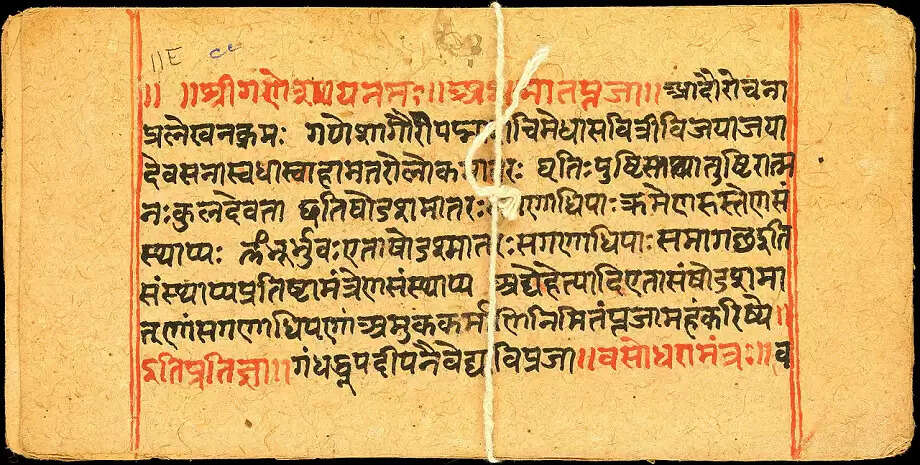 ॥E
॥ ॥श्रीगणेशायनमः॥ मातपूजा॥ आदौरोचना
प्रलेखनक्रमः गणेशगौरीपद्मा चिमेधासवित्रीविजयाजया
देवसेनास्वधास्वाहामतरोलोक तरः धृतिःपुष्टि तुष्टिरात्म
नःकुलदेवता षोडशमातरः णाधिपाःक्रमेणहस्तेणसं
स्याप्यः भूर्भुवःएताषोडश्मात ःसगणाधिपाःसमाग
संस्याप्यप्रतिष्टामंत्रेणसंस्याप्य अद्येहेत्यादिएतासंषोडशमा
तृणांसगणाधिपणां अमुककर्म निमितंपूजामहंकरिष्ये॥
इतिप्रतिज्ञा॥ गंधद्रूपदीपनैवेद्य विपूजा॥ वसोधरामंत्रः॥ व